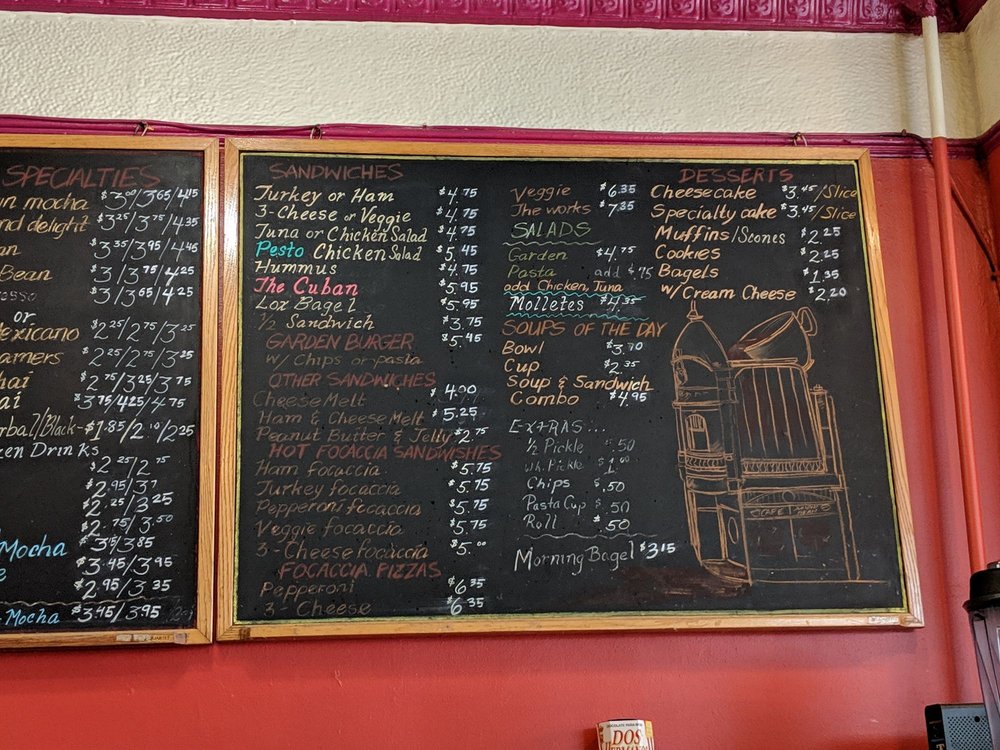 SPECIALTIES
mocha $3.00/3.65/4.15
delight $3.25/3.75/4.35
$3.35/3.95/4.45
Bean $3/3.75/4.25
$3/3.65/4.25
or
exicano $2.25/2.75/3.25
amers $2.25/2.75/3.25
hai $2.75/3.25/3.75
ai $3.75/4.25/4.75
rbal/Black-$1.85/2.10/2.25
zen Drinks
$2.25/2.75
$2.95/3.
$2.25/3.25
$2.75/3.50
Mocha $3.45/3.85
$3.45/3.95
$2.95/3.35
Mocha $3.45/3.95
SANDWICHES
Turkey or Ham $4.75
3-Cheese or Veggie $4.75
Tuna or Chicken Salad $4.75
Pesto Chicken Salad $5.45
Hummus $4.75
The Cuban $5.95
Lox Bagel $5.95
1/2 Sandwich $3.75
GARDEN BURGER $5.45
w/ Chips or pasta
OTHER SANDWICHES
Cheese Melt $4.00
Ham & Cheese Melt $5.25
Peanut Butter & Jelly $2.75
HOT FOCACCIA SANDWISHES
Ham focaccia $5.75
Turkey focaccia $5.75
Pepperoni focaccia $5.75
Veggie focaccia $5.75
3-Cheese focaccia $5.00
FOCACCIA PIZZAS
Pepperoni $6.35
3-Cheese $6.35
Veggie $6.35
The works $7.35
SALADS
Garden $4.75
Pasta add $.75
add Chicken, Tuna
Molletes $4.35
SOUPS OF THE DAY
Bowl $3.70
Cup $2.35
Soup & Sandwich
Combo $4.95
EXTRAS...
1/2 Pickle $.50
Wh. Pickle $1.00
Chips $.50
Pasta Cup $.50
Roll $.50
Morning Bagel $3.15
DESSERTS
Cheesecake $3.45/Slice
Specialty cake $3.45/Slice
Muffins/Scones $2.25
Cookies $2.25
Bagels $1.35
w/ Cream Cheese $2.20
CAFE
DOS